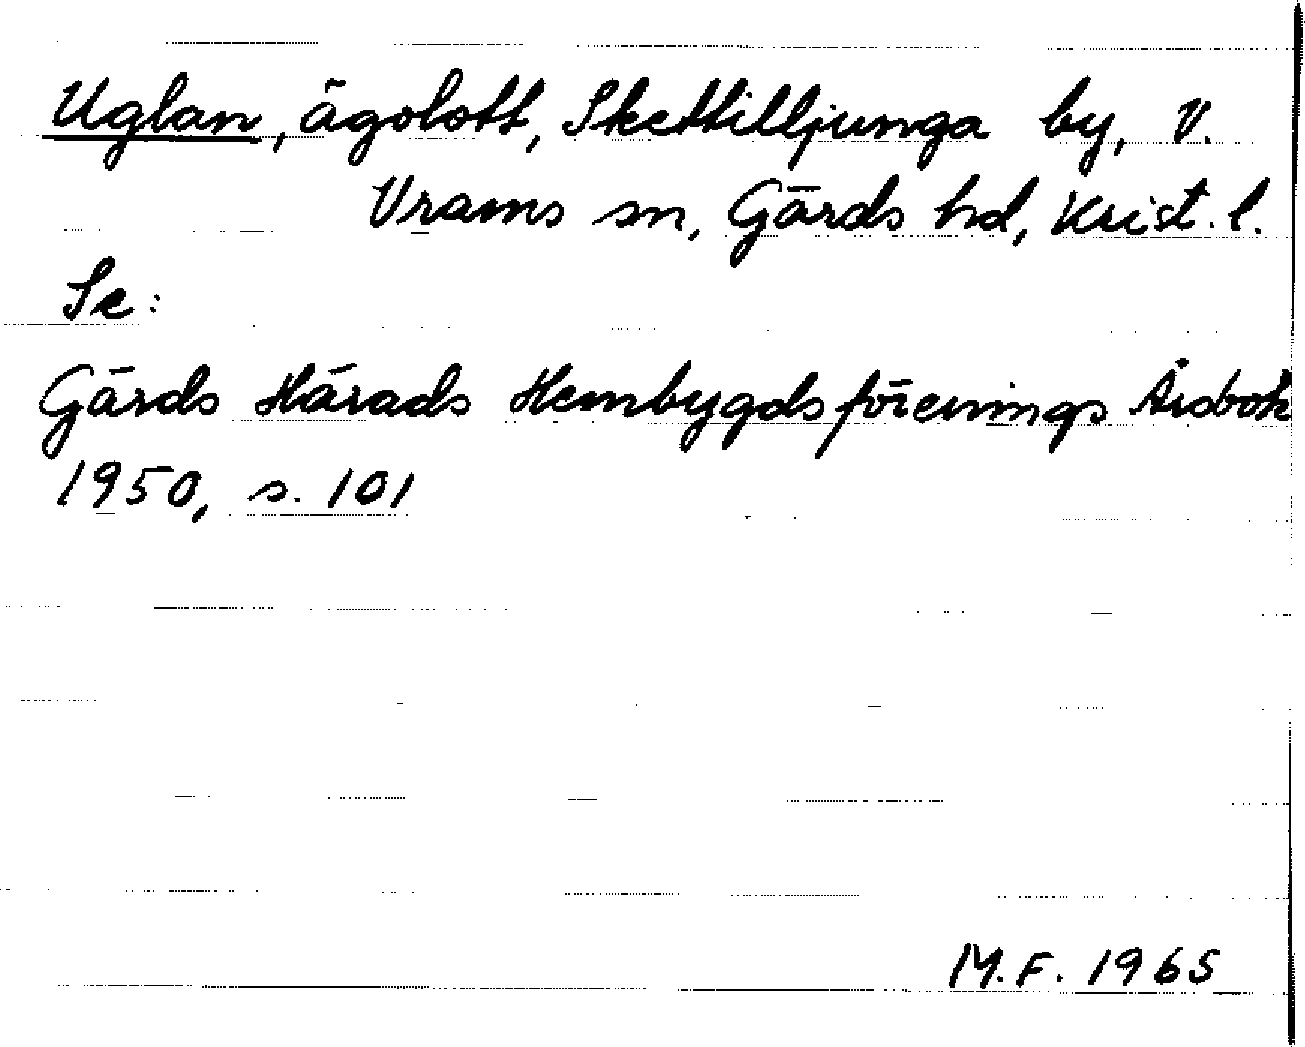 Uglan, ägolott, Skettilljunga by, V.
Vrams sn, Gärds hd, Krist. l.
Se:
Gärds Härads Hembygdsförenings Årsbok
1950, s. 101
M.F. 1965